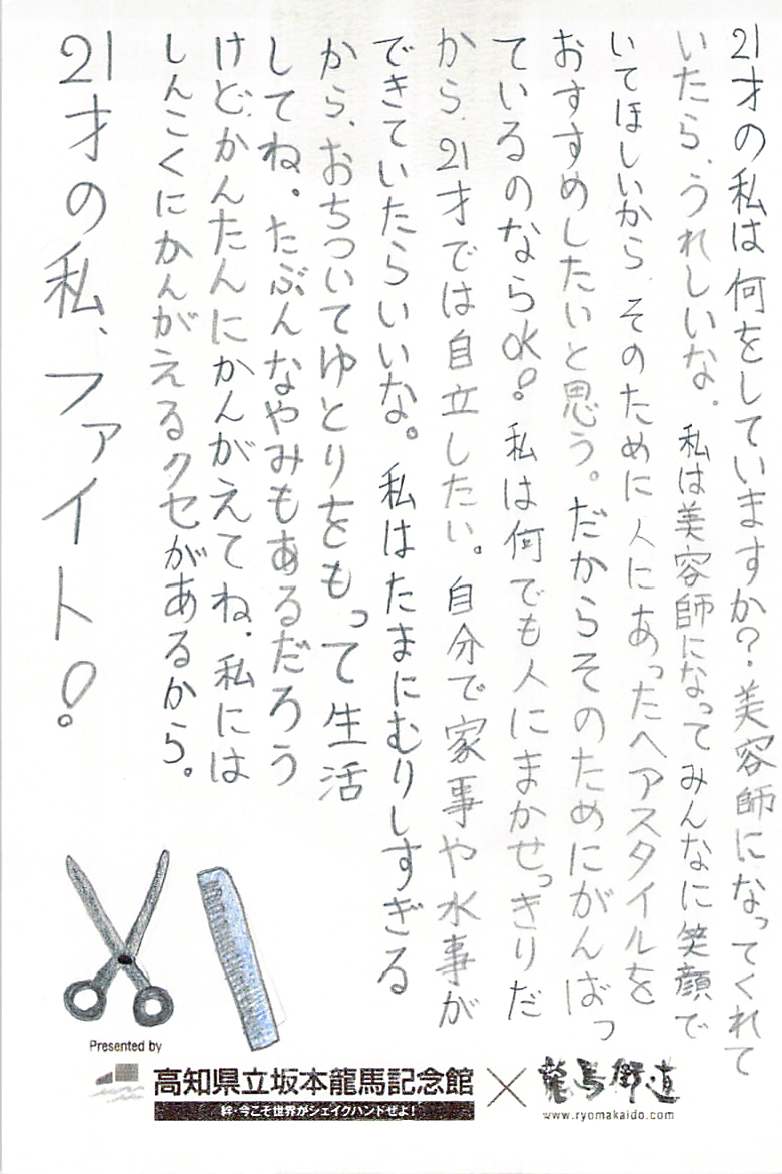 21才の私は何をしていますか?.美容師になってくれて
いたら、うれしいな。私は美容師になってみんなに笑顔で
いてほしいから、そのために人にあったヘアスタイルを
おすすめしたいと思う。だからそのためにがんばっ
ているのならOK!私は何でも人にまかせっきりだ
から、21才では自立したい。自分で家事や水事が
できていたらいいな。私はたまにむりしすぎる
から、おちついてゆとりをもって生活
してね。たぶんなやみもあるだろう
けど、かんたんにかんがえてね。私には
しんこくにかんがえるクセがあるから。
21才の私、ファイト!
Presented by
高知県立坂本龍馬記念館×龍馬街道
絆・今こそ世界がシェイクハンドぜよ!
www.ryomakaido.com